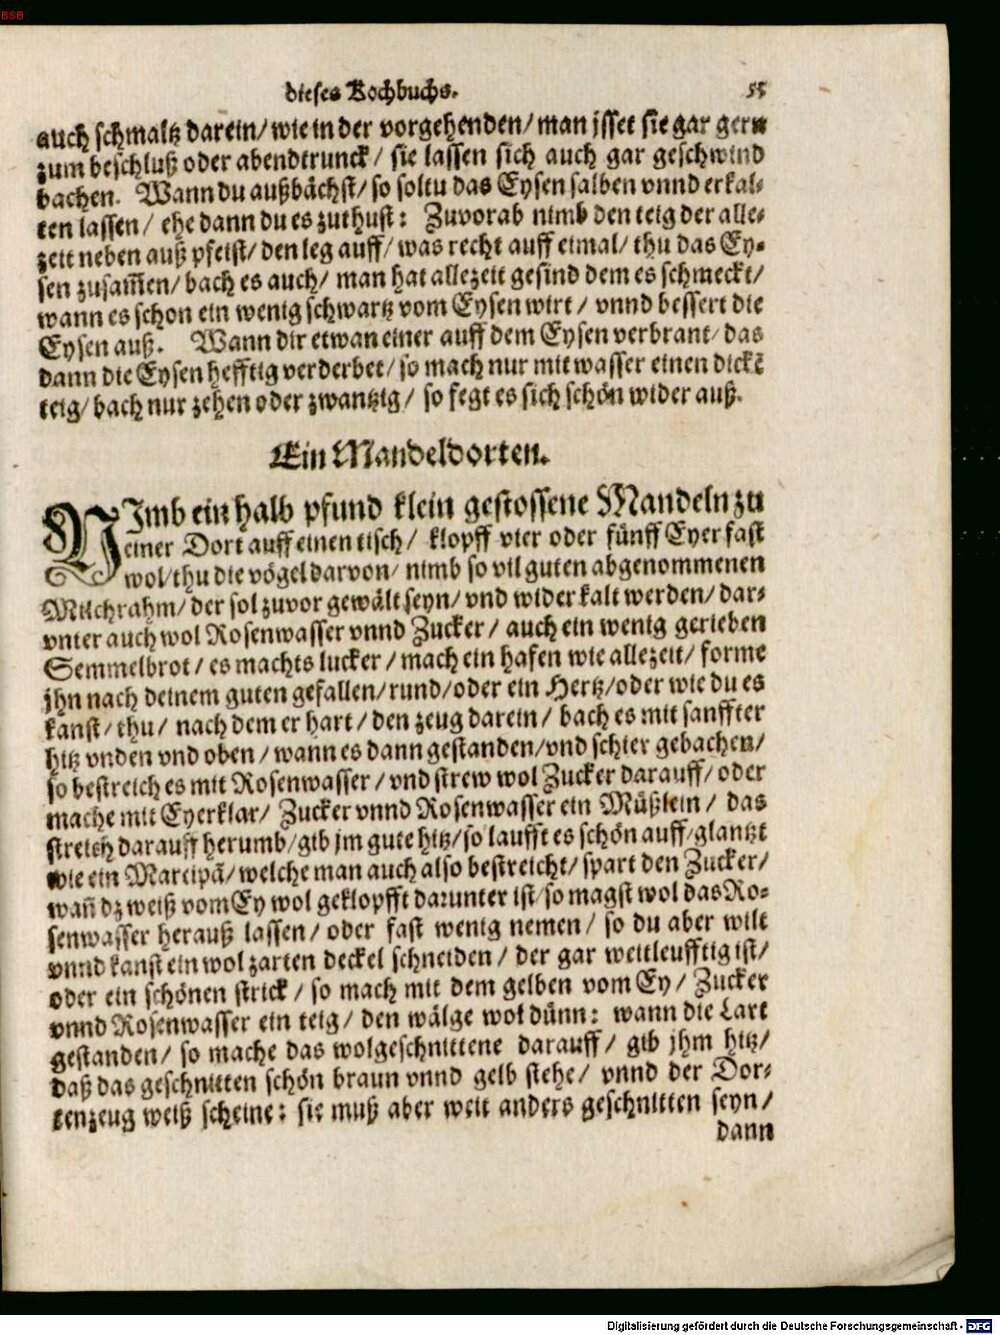 BSB
dieses Kochbuchs. 55
auch schmaltz darein/ wie in der vorgehenden/ man jsset sie gar gern
zum beschluß oder abendtrunck/ sie lassen sich auch gar geschwind
bachen. Wann du außbächst/ so soltu das Eysen salben vnnd erkal-
ten lassen/ ehe dann du es zuthust: Zuvorab nimb den teig der alle-
zeit neben auß pfeist/ den leg auff/ was recht auff eimal/ thu das Ey-
sen zusam̃en/ bach es auch/ man hat allezeit gesind dem es schmeckt/
wann es schon ein wenig schwartz vom Eysen wirt/ vnnd bessert die
Eysen auß. Wann dir etwan einer auff dem Eysen verbrant/ das
dann die Eysen hefftig verderbet/ so mach nur mit wasser einen dickẽ
teig/ bach nur zehen oder zwantzig/ so fegt es sich schön wider auß.
Ein Mandeldorten.
NImb ein halb pfund klein gestossene Mandeln zu
einer Dort auff einen tisch/ klopff vier oder fünff Eyer fast
wol/ thu die vögel darvon/ nimb so vil guten abgenommenen
Milchrahm/ der sol zuvor gewält seyn/ vnd wider kalt werden/ dar-
vnter auch wol Rosenwasser vnnd Zucker/ auch ein wenig gerieben
Semmelbrot/ es machts lucker/ mach ein hafen wie allezeit/ forme
jhn nach deinem guten gefallen/ rund/ oder ein Hertz/ oder wie du es
kanst/ thu/ nach dem er hart/ den zeug darein/ bach es mit sanffter
hitz vnden vnd oben/ wann es dann gestanden/ vnd schier gebachen/
so bestreich es mit Rosenwasser/ vnd strew wol Zucker darauff/ oder
mache mit Eyerklar/ Zucker vnnd Rosenwasser ein Müßlein/ das
streich darauff herumb/ gib jm gute hitz/ so laufft es schön auff/ glantzt
wie ein Marcipã/ welche man auch also bestreicht/ spart den Zucker/
wañ dz weiß vom Ey wol geklopfft darunter ist/ so magst wol das Ro-
senwasser herauß lassen/ oder fast wenig nemen/ so du aber wilt
vnnd kanst ein wol zarten deckel schneiden/ der gar weitleufftig ist/
oder ein schönen strick/ so mach mit dem gelben vom Ey/ Zucker
vnnd Rosenwasser ein teig/ den wälge wol dünn: wann die Tart
gestanden/ so mache das wolgeschnittene darauff/ gib jhm hitz/
daß das geschnitten schön braun vnnd gelb stehe/ vnnd der Dor-
tenzeug weiß scheine: sie muß aber weit anders geschnitten seyn/
dann
Digitalisierung gefördert durch die Deutsche Forschungsgemeinschaft - DFG